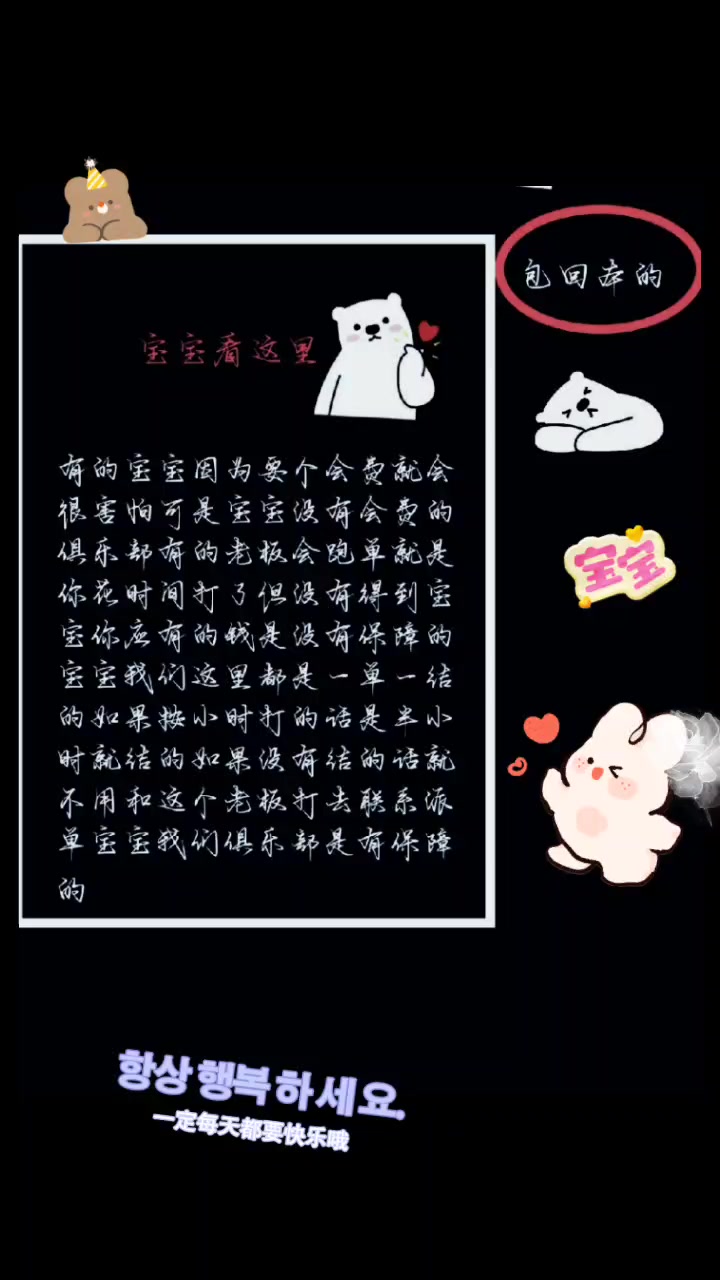 包回本的
宝宝看这里
有的宝宝因为要个会费就会
很害怕可是宝宝没有会费的
俱乐部有的老板会跑单就是
你花时间打了但没有得到宝
宝你应有的钱是没有保障的
宝宝我们这里都是一单一结
的如果按小时打的话是半小
时就结的如果没有结的话就
不用和这个老板打去联系派
单宝宝我们俱乐部是有保障
的
宝宝
항상 행복하세요.
一定每天都要快乐哦